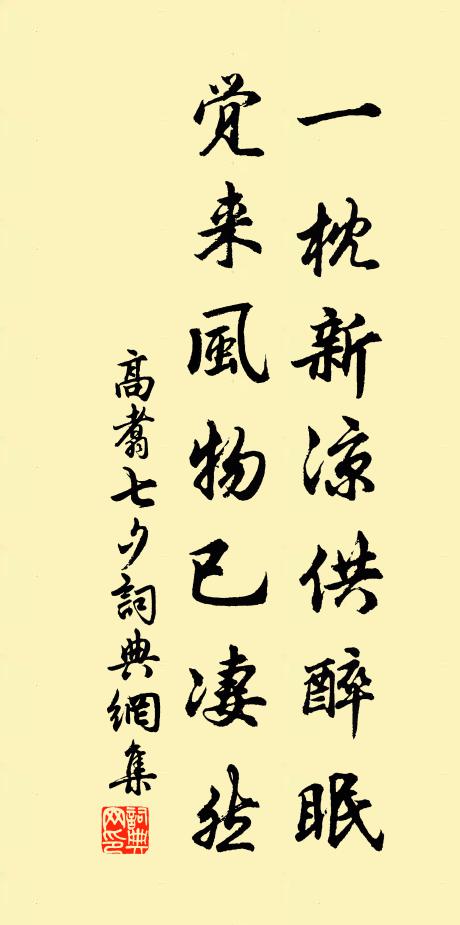 一枕新涼供醉眠
覚来風物已凄然
高翥七夕詞典網集
詞典网印